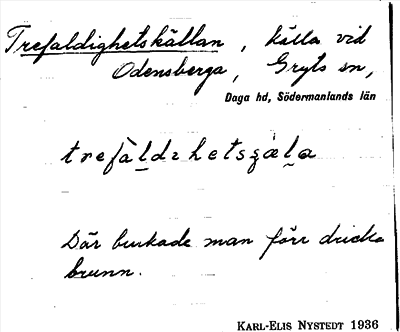 Trefaldighetskällan, källa vid
Odensberga, Gryts sn,
Daga hd, Södermanlands län
trefàldɪhetsʂæ̀l̥a
Där brukade man förr dricka
brunn.
KARL-ELIS NYSTEDT 1936